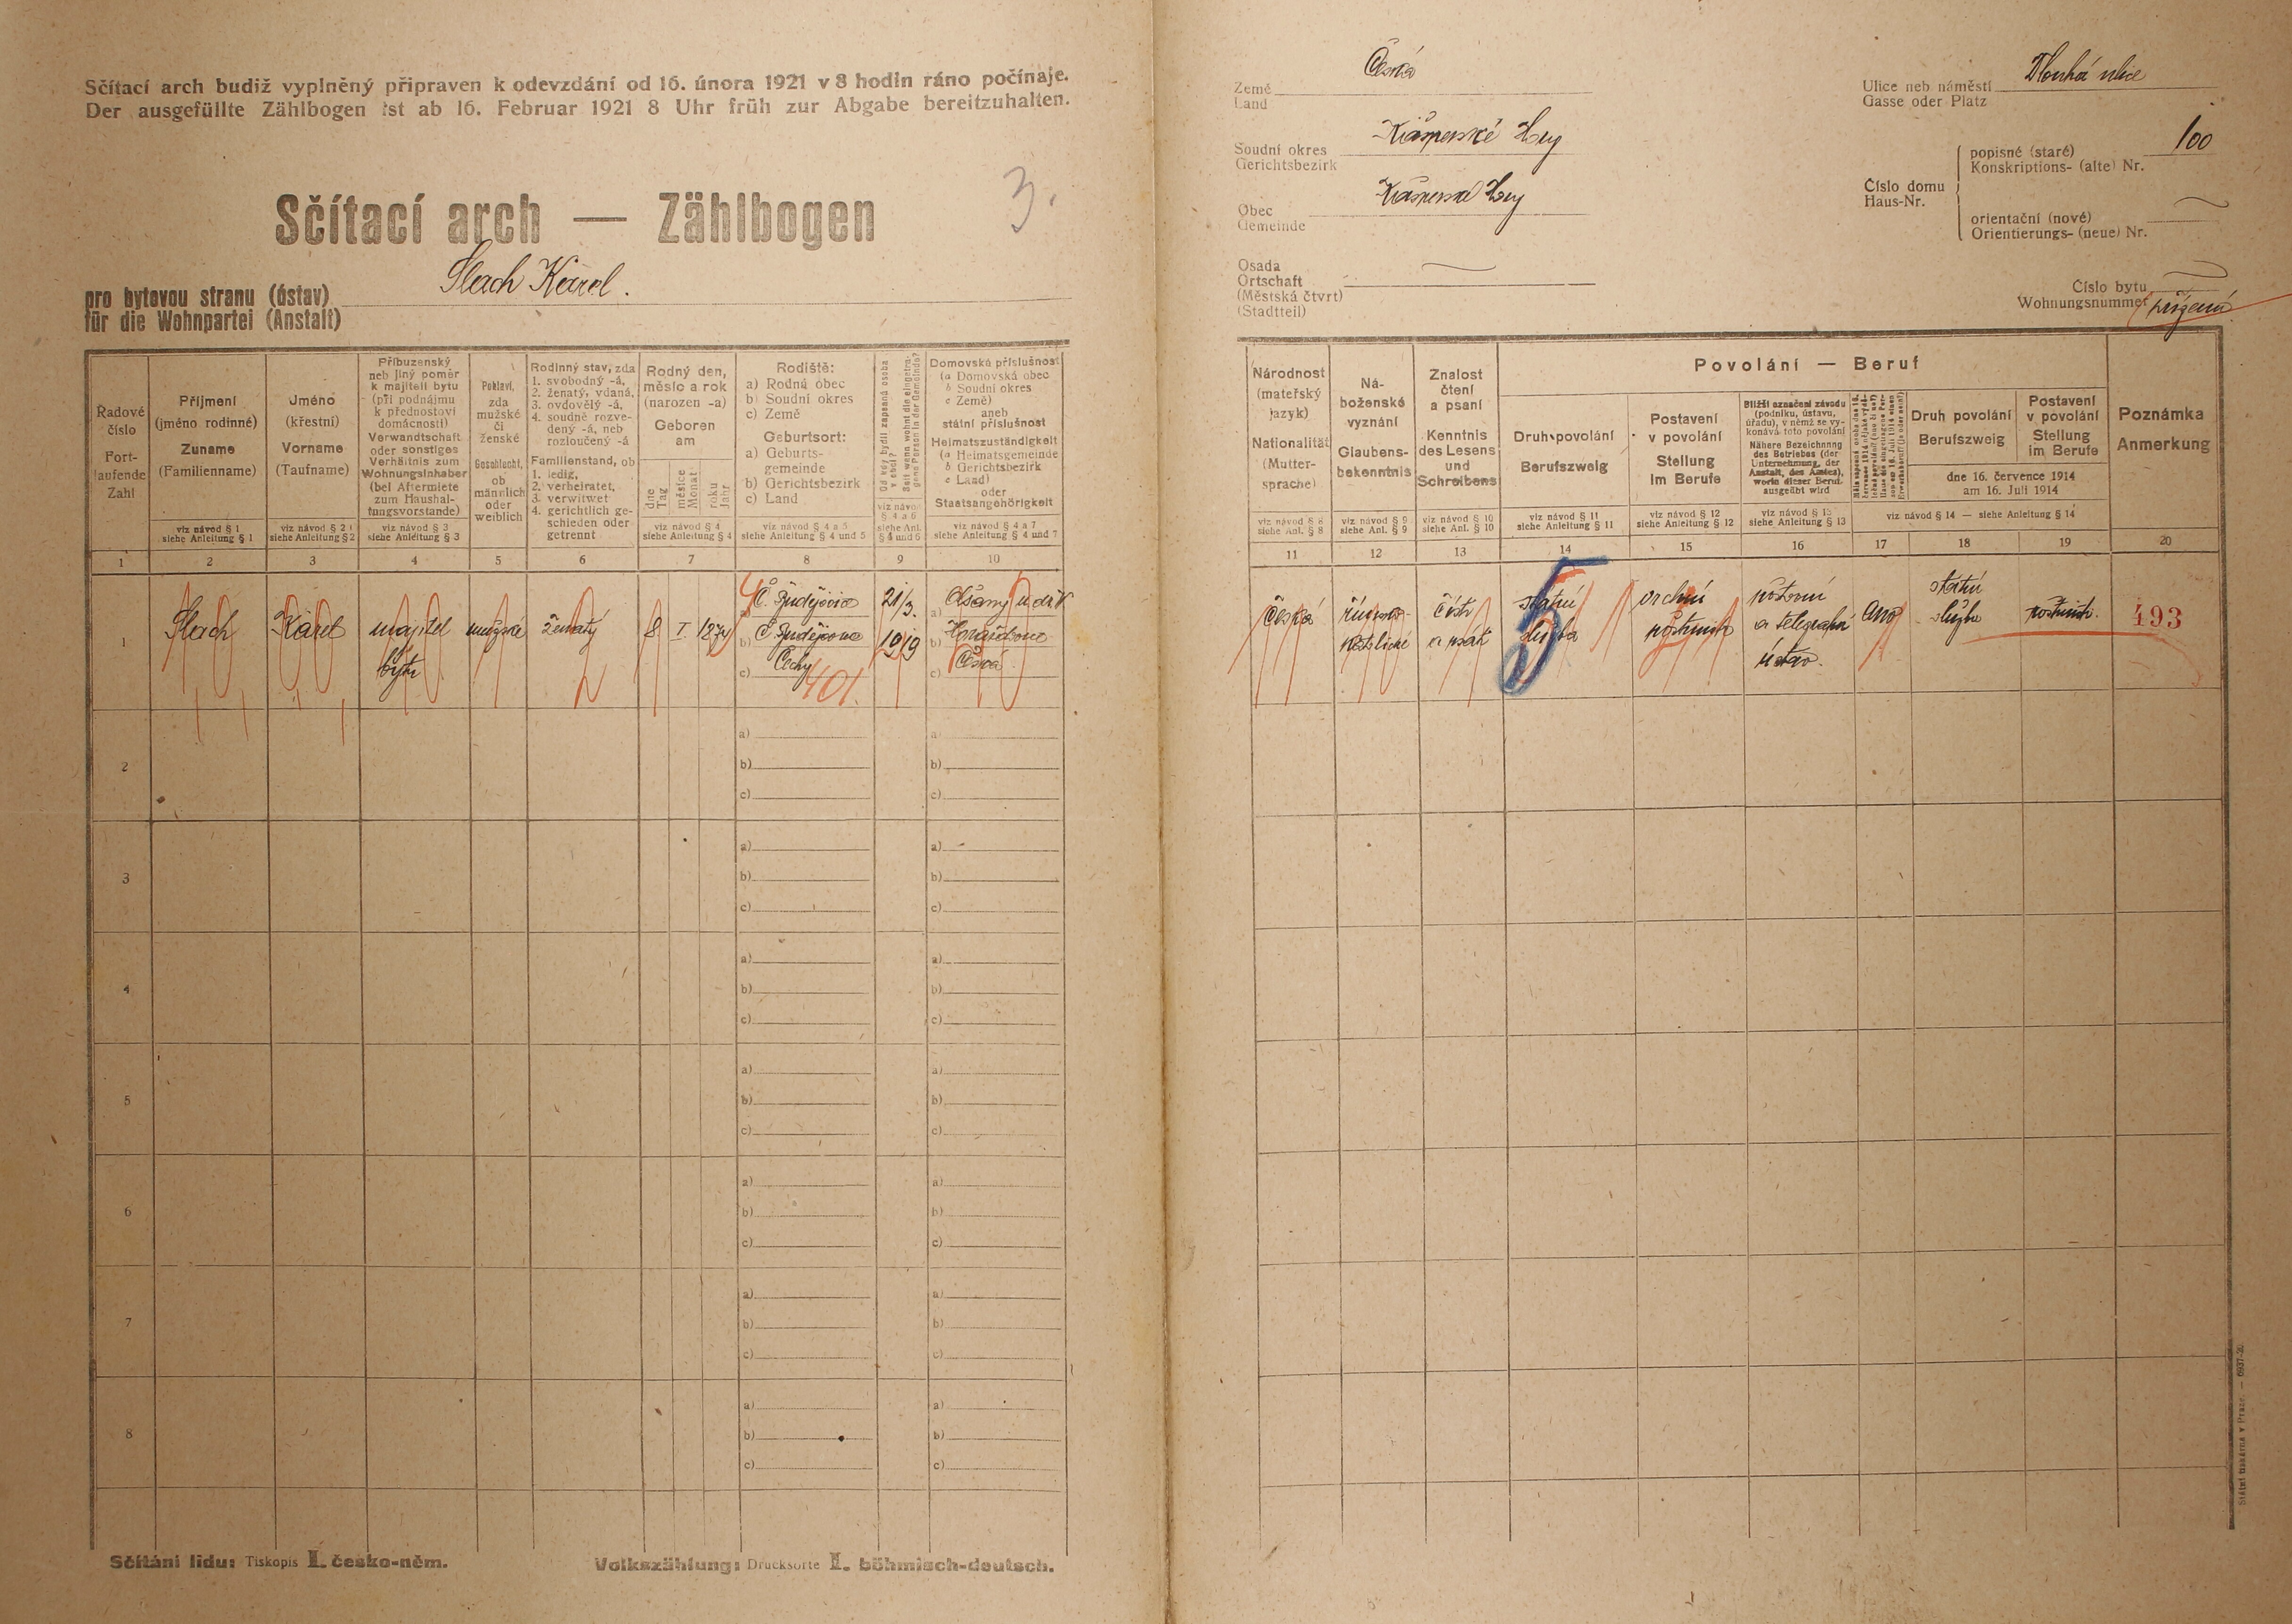 Sčítací arch budiž vyplněný připraven k odevzdání od 16. února 1921 v 8 hodin ráno počínaje.
Der ausgefüllte Zählbogen ist ab 16. Februar 1921 8 Uhr früh zur Abgabe bereitzuhalten.
Sčítací arch — Zählbogen
3.
pro bytovou stranu (ústav)
für die Wohnpartei (Anstalt)
Slach Karel.
Země
Land
Česká
Soudní okres
Gerichtsbezirk
Kašperské Hory
Obec
Gemeinde
Kašperské Hory
Osada
Ortschaft
(Městská čtvrť)
(Stadtteil)
Ulice neb náměstí
Gasse oder Platz
Dlouhá ulice
Číslo domu
Haus-Nr.
popisné (staré)
Konskriptions- (alte) Nr.
100
orientační (nové)
Orientierungs- (neue) Nr.
Číslo bytu
Wohnungsnummer
Řadové
číslo
Fort-
laufende
Zahl
Příjmení
(jméno rodinné)
Zuname
(Familienname)
viz návod § 1
siehe Anleitung § 1
Jméno
(křestní)
Vorname
(Taufname)
viz návod § 2
siehe Anleitung § 2
Příbuzenský
neb jiný poměr
k majiteli bytu
(při podnájmu
k přednostovi
domácnosti)
Verwandtschaft
oder sonstiges
Verhältnis zum
Wohnungsinhaber
(bei Aftermiete
zum Haushal-
tungsvorstande)
viz návod § 3
siehe Anleitung § 3
Pohlaví,
zda
mužské
či
ženské
Geschlecht,
ob
männlich
oder
weiblich
Rodinný stav, zda
1. svobodný -á,
2. ženatý, vdaná,
3. ovdovělý -á,
4. soudně rozve-
dený -á, neb
rozloučený -á
Familienstand, ob
1. ledig,
2. verheiratet,
3. verwitwet
4. gerichtlich ge-
schieden oder
getrennt
Rodný den,
měsíc a rok
(narozen -a)
Geboren
am
dne
Tag
měsíce
Monat
roku
Jahr
viz návod § 4
siehe Anleitung § 4
Rodiště:
a) Rodná obec
b) Soudní okres
c) Země
Geburtsort:
a) Geburts-
gemeinde
b) Gerichtsbezirk
c) Land
viz návod § 4 a 5
siehe Anleitung § 4 und 5
Od kdy bydlí zapsaná osoba
v obci?
Seit wann wohnt die eingetra-
gene Person in der Gemeinde?
viz návod
§ 4 a 6
siehe Anl.
§ 4 und 6
Domovská příslušnost
(a Domovská obec
b Soudní okres
c Země)
aneb
státní příslušnost
Heimatszuständigkeit
(a Heimatsgemeinde
b Gerichtsbezirk
c Land)
oder
Staatsangehörigkeit
viz návod § 4 a 7
siehe Anleitung § 4 und 7
Národnost
(mateřský
jazyk)
Nationalität
(Mutter-
sprache)
viz návod § 8
siehe Anl. § 8
Ná-
boženské
vyznání
Glaubens-
bekenntnis
viz návod § 9
siehe Anl. § 9
Znalost
čtení
a psaní
Kenntnis
des Lesens
und
Schreibens
viz návod § 10
siehe Anl. § 10
Povolání — Beruf
Druh povolání
Berufszweig
viz návod § 11
siehe Anleitung § 11
Postavení
v povolání
Stellung
im Berufe
viz návod § 12
siehe Anleitung § 12
Bližší označení závodu
(podniku, ústavu,
úřadu), v němž se vy-
konává toto povolání
Nähere Bezeichnung
des Betriebes (der
Unternehmung, der
Anstalt, des Amtes),
worin dieser Beruf
ausgeübt wird
viz návod § 13
siehe Anleitung § 13
Druh povolání
Berufszweig
Postavení
v povolání
Stellung
im Berufe
dne 16. července 1914
am 16. Juli 1914
viz návod § 14 — siehe Anleitung § 14
Poznámka
Anmerkung
1 2 3 4 5 6 7 8 9 10 11 12 13 14 15 16 17 18 19 20
1
Slach
Karel
majitel
bytu
mužské
ženatý
2
8 I
a) Č. Budějovice
b) Č. Budějovice
c) Čechy
401.
21/3.
1919
a)
b) Horažďovice
c) Česká
Česká
římsko-
katolické
čísti
a psáti
státní
služba
5
vrchní
poštmistr
poštovní
a telegrafní
ústav.
ano
státní
služba
poštmistr.
493
2
a)
b)
c)
a)
b)
c)
3
a)
b)
c)
a)
b)
c)
4
a)
b)
c)
a)
b)
c)
5
a)
b)
c)
a)
b)
c)
6
a)
b)
c)
a)
b)
c)
7
a)
b)
c)
a)
b)
c)
8
a)
b)
c)
a)
b)
c)
Sčítání lidu: Tiskopis I. česko-něm.
Volkszählung: Drucksorte I. böhmisch-deutsch.